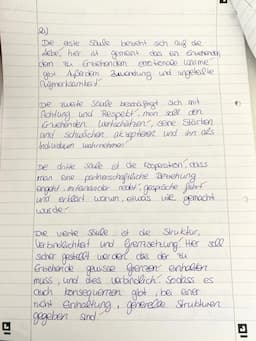 Die erste Säule bezieht sich auf die
Liebe, hier ist gemeint das ein Erziehender,
dem zu Erziehenden emotionale Wärme
gibt. Außerdem Zuwendung und ungeteilte
Aufmerksamkeit.
Die zweite Säule beschäftigt sich mit
Achtung und Respekt, man soll den
Erziehenden wertschätzen, seine Stärken
und schwächen akzeptieren und ihn als
Individuum wahrnehmen.
Die dritte Säule ist die Kooperation, dass
man eine partnerschaftliche Beziehung
eingeht, miteinander redet, gespräche führt
und erklärt warum, etwas wie gemacht
wurde.
Die vierte Säule ist die Struktur,
Verbindlichkeit und Grenzsetzung. Hier soll
sicher gestellt werden das der zu
Erziehende gewisse grenzen einhalten
muss, und dies verbindlich. Sodass es
auch konsequenzen gibt, bei einer
nicht Einhaltung, generelle Strukturen
gegeben sind.